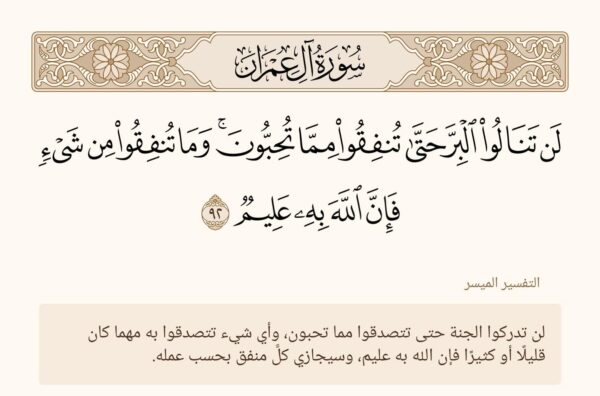 سُورَةُ آلِ عِمْرَان
لَن تَنَالُوا۟ ٱلْبِرَّ حَتَّىٰ تُنفِقُوا۟ مِمَّا تُحِبُّونَ ۚ وَمَا تُنفِقُوا۟ مِن شَىْءٍ
فَإِنَّ ٱللَّهَ بِهِۦ عَلِيمٌ ٩٢
التفسير الميسر
لن تدركوا الجنة حتى تتصدقوا مما تحبون، وأي شيء تتصدقوا به مهما كان
قليلًا أو كثيرًا فإن الله به عليم، وسيجازي كلَّ منفق بحسب عمله.